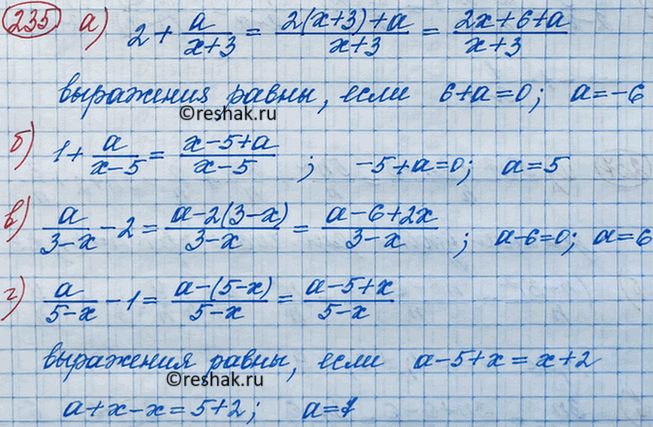 235 а) 2 + a/(x+3) = (2(x+3)+a)/(x+3) = (2x+6+a)/(x+3)
выражения равны, если 6+a=0; a=-6
©reshak.ru
б) 1 + a/(x-5) = (x-5+a)/(x-5) ; -5+a=0; a=5
в) a/(3-x) - 2 = (a-2(3-x))/(3-x) = (a-6+2x)/(3-x) ; a-6=0; a=6
г) a/(5-x) - 1 = (a-(5-x))/(5-x) = (a-5+x)/(5-x)
выражения равны, если a-5+x=x+2
©reshak.ru
a+x-x=5+2; a=7